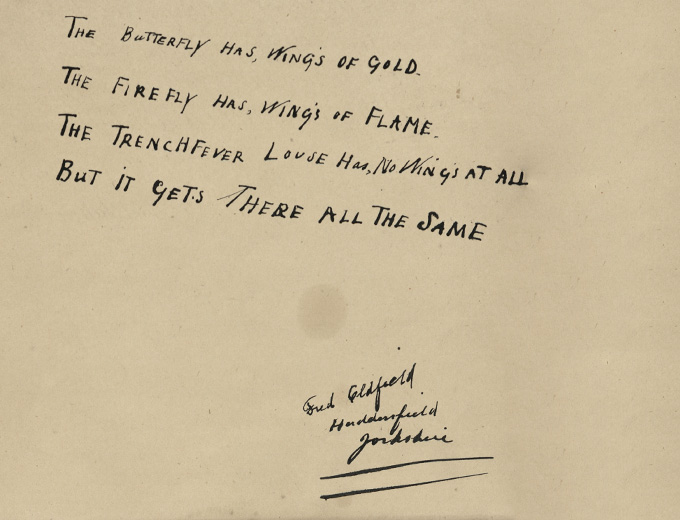 THE BUTTERFLY HAS, WING'S OF GOLD.
THE FIREFLY HAS, WING'S OF FLAME.
THE TRENCHFEVER LOUSE HAS, NO WING'S AT ALL
BUT IT GETS THERE ALL THE SAME
Fred Oldfield
Huddersfield
Yorkshire